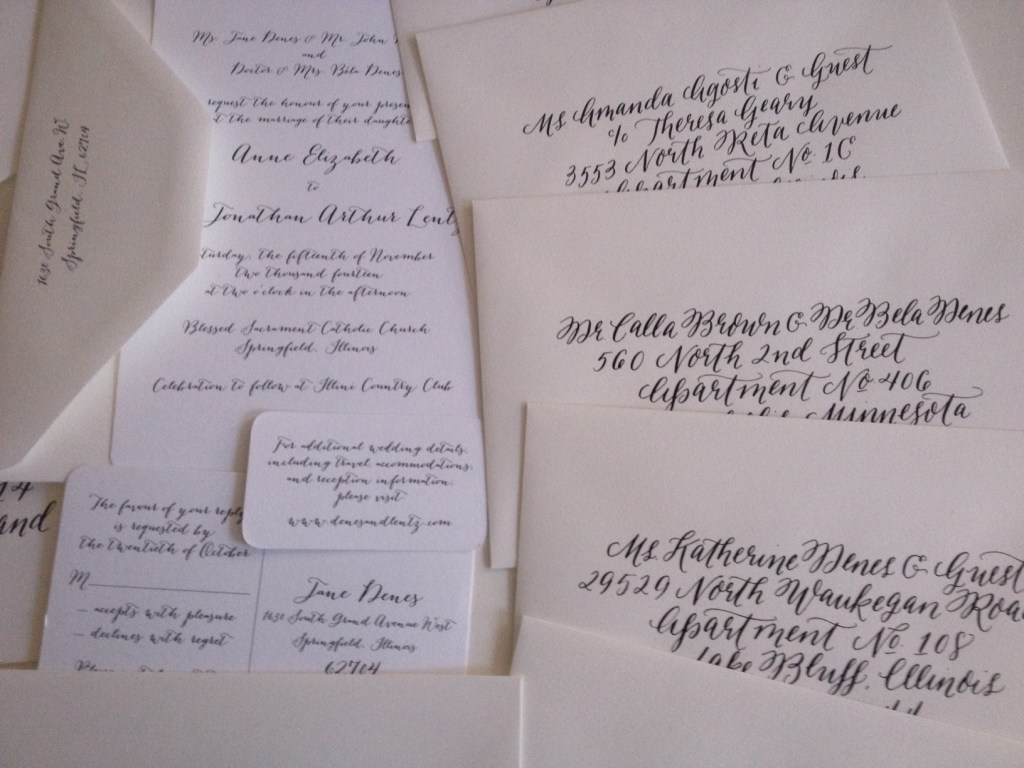 1630 South Grand Ave W
Springfield, IL 62704
Ms. Jane Denes & Mr. John
and
Doctor & Mrs. Bela Denes
request the honour of your presen
at the marriage of their daughte
Anne Elizabeth
to
Jonathan Arthur Lentz
turday, the fifteenth of November
two thousand fourteen
at two o'clock in the afternoon
Blessed Sacrament Catholic Church
Springfield, Illinois
Celebration to follow at Illini Country Club
For additional wedding details,
including travel, accommodations,
and reception information,
please visit
www.denesandlentz.com
and
The favour of your reply
is requested by
the twentieth of October
M
accepts with pleasure
declines with regret
Jane Denes
1630 South Grand Avenue West
Springfield, Illinois
62704
Ms Amanda Agosti & Guest
c/o Theresa Geary
3553 North Reta Avenue
Apartment No. 1C
Dr Calla Brown & Dr Bela Denes
560 North 2nd Street
Apartment No 406
Minnesota
Ms. Katherine Denes & Guest
29529 North Waukegan Roa
Apartment No. 108
Lake Bluff, Illinois